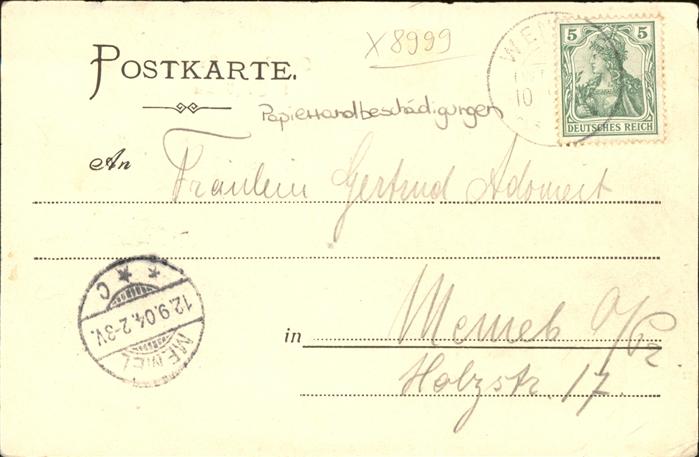 X8999
POSTKARTE.
WE
10
5 5
DEUTSCHES REICH
Papierrandbeschädigungen
An Fräulein Gertrud Adomeit
in Memel O/Pr
Holzstr. 17.
MEMEL
12.9.04.2-3V.
* * C